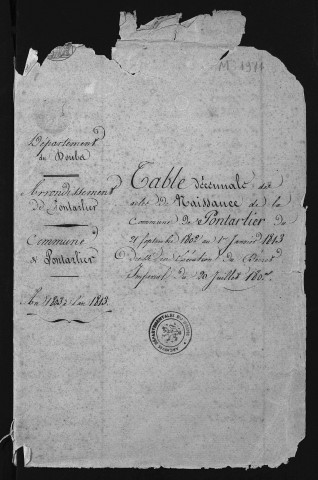 M 1911
Département
du Doubs
Arrondissement
de Pontarlier
Commune
de Pontarlier
An 1803 à l'an 1813
Table décennale des
actes de Naissance de la
Commune de Pontarlier du
21 Septembre 1802 au 1er Janvier 1813
Dressée en exécution du Décret
Impérial du 20 Juillet 1807
ARCHIVES DEPARTEMENTALES DU DOUBS